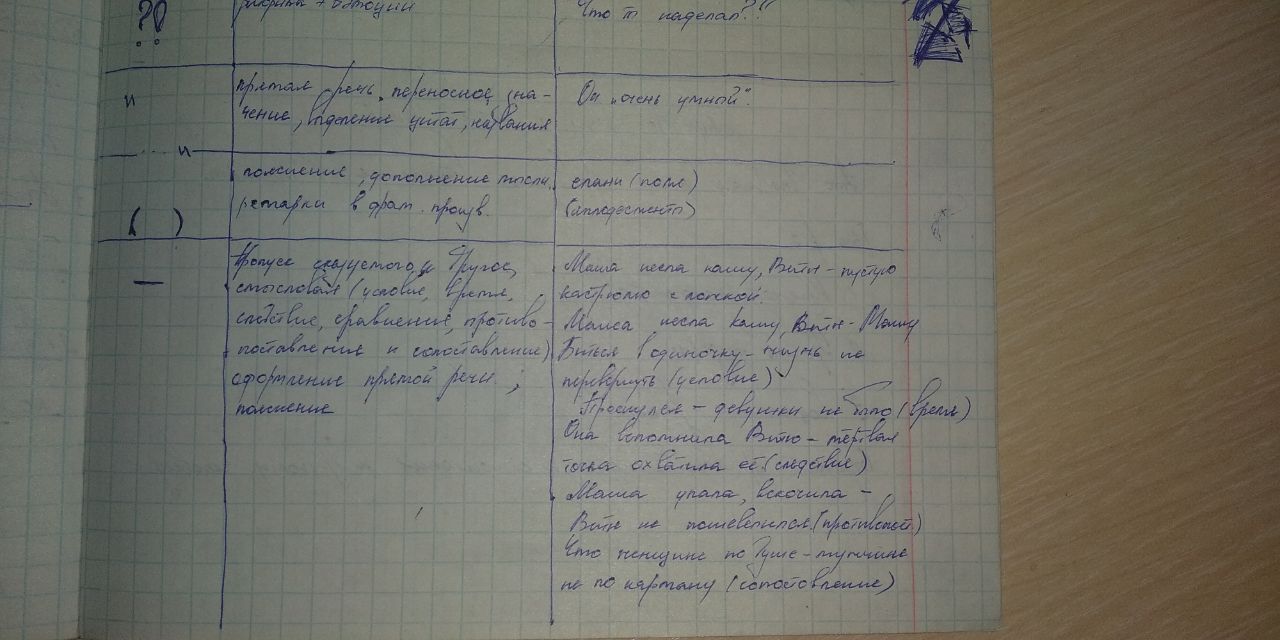 ?!
эмоции
Что т наделал?!
"
прямая речь, переносное зна-
чение, выделение цитат, названия
Он „очень умный".
"
( )
пояснение, дополнение мысли,
ремарки в драм. произв.
елани (поля)
(аплодесменты)
—
Пропуск сказуемого и другое,
смысловая (условие, время,
следствие, сравнение, противо-
поставления и сопоставление)
оформление прямой речи;
пояснение
Маша несла кашу, Витя - пустую
кастрюлю с ложкой.
Маша несла кашу, Витя - Машу
Биться в одиночку - жизнь не
перевернуть (условие)
Проснулся - девушки не было (время)
Она вспомнила Витю - мёртвая
тоска охватила её (следствие)
Маша упала, вскочила -
Витя не пошевелился (противопост.)
Что женщине по душе - мужчине
не по карману (сопоставление)